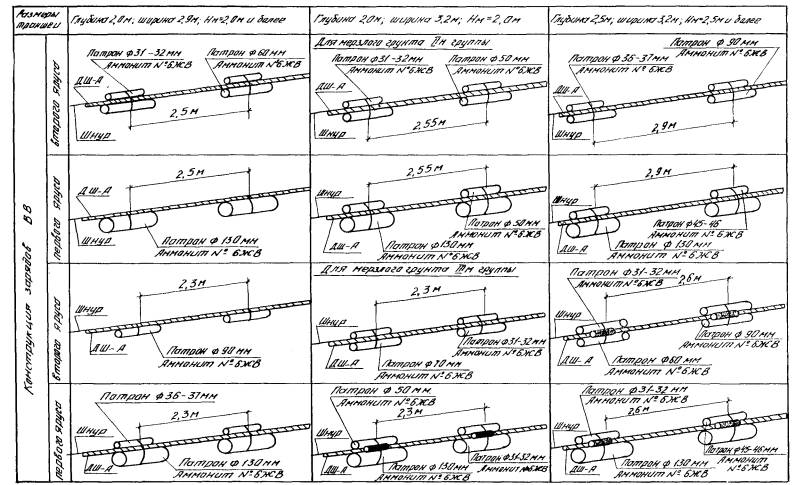 Размеры траншеи
Глубина 2,0м; ширина 2,9м; Нм=2,0м и более
Глубина 2,0м; ширина 3,2м; Нм=2,0м
Глубина 2,5м; ширина 3,2м; Нм=2,5м и более
Конструкция зарядов ВВ
второго яруса
Патрон ф31-32мм
Аммонит №6ЖВ
Патрон ф60мм
Аммонит №6ЖВ
ДШ-А
2,5м
Шнур
Для мерзлого грунта
группы
Патрон ф31-32мм
Аммонит №6ЖВ
Патрон ф50мм
Аммонит №6ЖВ
ДШ-А
2,55м
Шнур
Патрон ф90мм
Аммонит №6ЖВ
Патрон ф36-37мм
Аммонит №6ЖВ
ДШ-А
2,9м
Шнур
первого яруса
2,5м
ДШ-А
Шнур
Патрон ф130мм
Аммонит №6ЖВ
2,55м
Шнур
Патрон ф50мм
Аммонит №6ЖВ
ДШ-А
Патрон ф130мм
Аммонит №6ЖВ
2,9м
Шнур
Патрон ф45-46
Аммонит №6ЖВ
ДШ-А
Патрон ф130мм
Аммонит №6ЖВ
второго яруса
2,3м
Шнур
ДШ-А
Патрон ф90мм
Аммонит №6ЖВ
Для мерзлого грунта
группы
2,3м
Шнур
Патрон ф31-32мм
Аммонит №6ЖВ
ДШ-А
Патрон ф70мм
Аммонит №6ЖВ
Патрон ф31-32мм
Аммонит №6ЖВ
2,6м
Шнур
Патрон ф90мм
Аммонит №6ЖВ
ДШ-А
Патрон ф60мм
Аммонит №6ЖВ
первого яруса
Патрон ф36-37мм
2,3м
Шнур
ДШ-А
Патрон ф130мм
Аммонит №6ЖВ
Патрон ф50мм
Аммонит №6ЖВ
2,3м
Шнур
ДШ-А
Патрон ф130мм
Аммонит №6ЖВ
Патрон ф31-32мм
Аммонит №6ЖВ
Патрон ф31-32мм
Аммонит №6ЖВ
2,6м
Шнур
Патрон ф45-46мм
Аммонит №6ЖВ
ДШ-А
Патрон ф130мм
Аммонит №6ЖВ